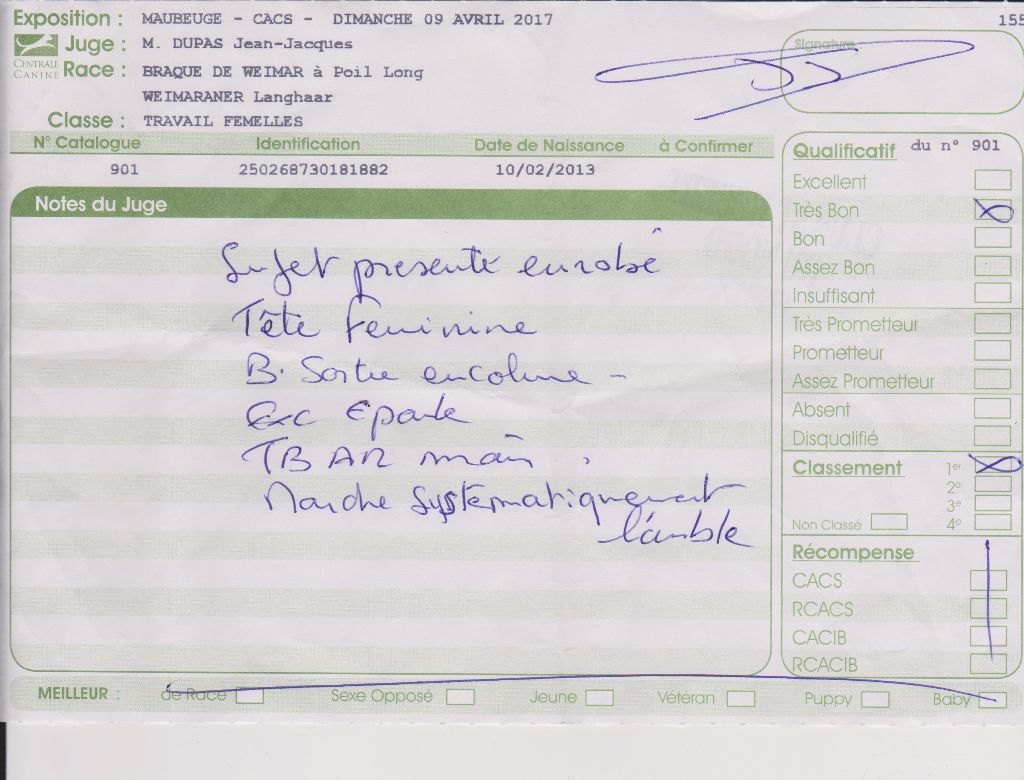 Exposition : MAUBEUGE - CACS - DIMANCHE 09 AVRIL 2017
155
CENTRALE CANINE
Juge : M. DUPAS Jean-Jacques
Signature
Race : BRAQUE DE WEIMAR à Poil Long
WEIMARANER Langhaar
Classe : TRAVAIL FEMELLES
N° Catalogue Identification Date de Naissance à Confirmer
901 250268730181882 10/02/2013
Notes du Juge
Sujet presenté enrobé
Tête feminine
B. Sortie encolure -
Exc Epaule
TB AR main
Marche systématiquement
l'amble
Qualificatif du n° 901
Excellent
Très Bon
Bon
Assez Bon
Insuffisant
Très Prometteur
Prometteur
Assez Prometteur
Absent
Disqualifié
Classement 1er
2e
3e
Non Classé 4e
Récompense
CACS
RCACS
CACIB
RCACIB
MEILLEUR : de Race Sexe Opposé Jeune Vétéran Puppy Baby